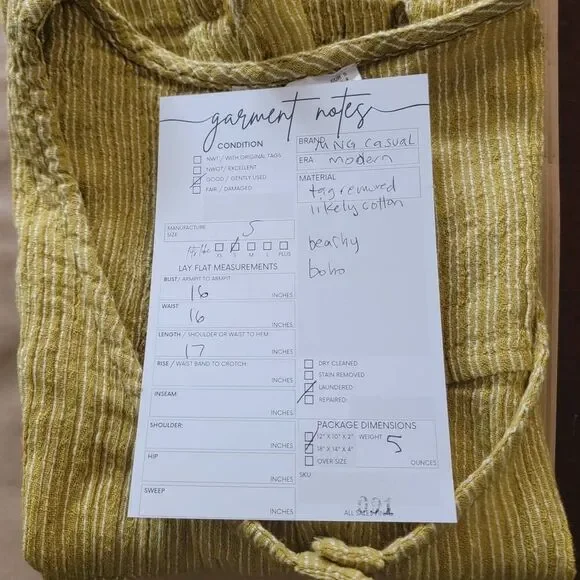 garment notes
CONDITION
NWT / WITH ORIGINAL TAGS
NWOT / EXCELLENT
GOOD / GENTLY USED
FAIR / DAMAGED
BRAND MNG Casual
ERA modern
MATERIAL
tag removed
likely cotton
beachy
boho
MANUFACTURE
SIZE: S
XS S M L PLUS
LAY FLAT MEASUREMENTS
BUST/ ARMPIT TO ARMPIT:
16 INCHES
WAIST:
16 INCHES
LENGTH / SHOULDER OR WAIST TO HEM:
17 INCHES
RISE / WAIST BAND TO CROTCH:
INCHES
INSEAM:
INCHES
SHOULDER:
INCHES
HIP
INCHES
SWEEP
INCHES
DRY CLEANED
STAIN REMOVED
LAUNDERED
REPAIRED:
PACKAGE DIMENSIONS
12" X 10" X 2" WEIGHT 5
18" X 14" X 4"
OVER SIZE OUNCES
SKU:
091
ALL SALES FINAL